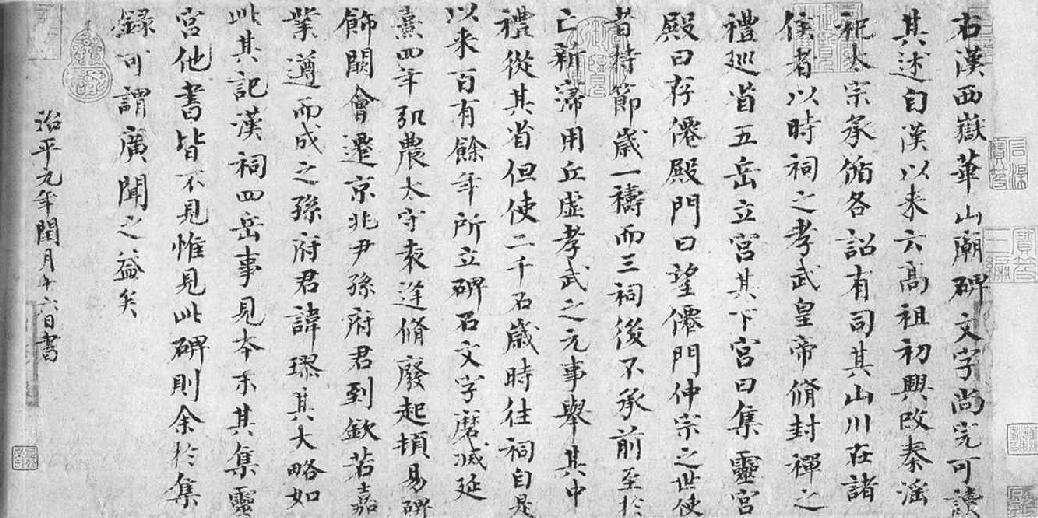 右漢西嶽華山廟碑文字尚完可讀
其述自漢以来云高祖初興改秦淫
祀太宗承循各詔有司其山川在諸
侯者以時祠之孝武皇帝脩封禪之
禮巡省五岳立宮其下宮曰集靈宮
殿曰存僊殿門曰望僊門仲宗之世使
者持節歲一禱而三祠後不承前至於
亡新寖用丘虛孝武之元事舉其中
禮從其省但使二千石歲時往祠自是
以来百有餘年所立碑石文字磨滅延
熹四年弘農太守袁逢脩廢起頓易碑
飾闕會遷京兆尹孫府君到欽若嘉
業遵而成之孫府君諱璆其大略如
此其記漢祠四岳事見本末其集靈
宮他書皆不見惟見此碑則余於集
録可謂廣聞之益矣
治平元年閏月十六日書